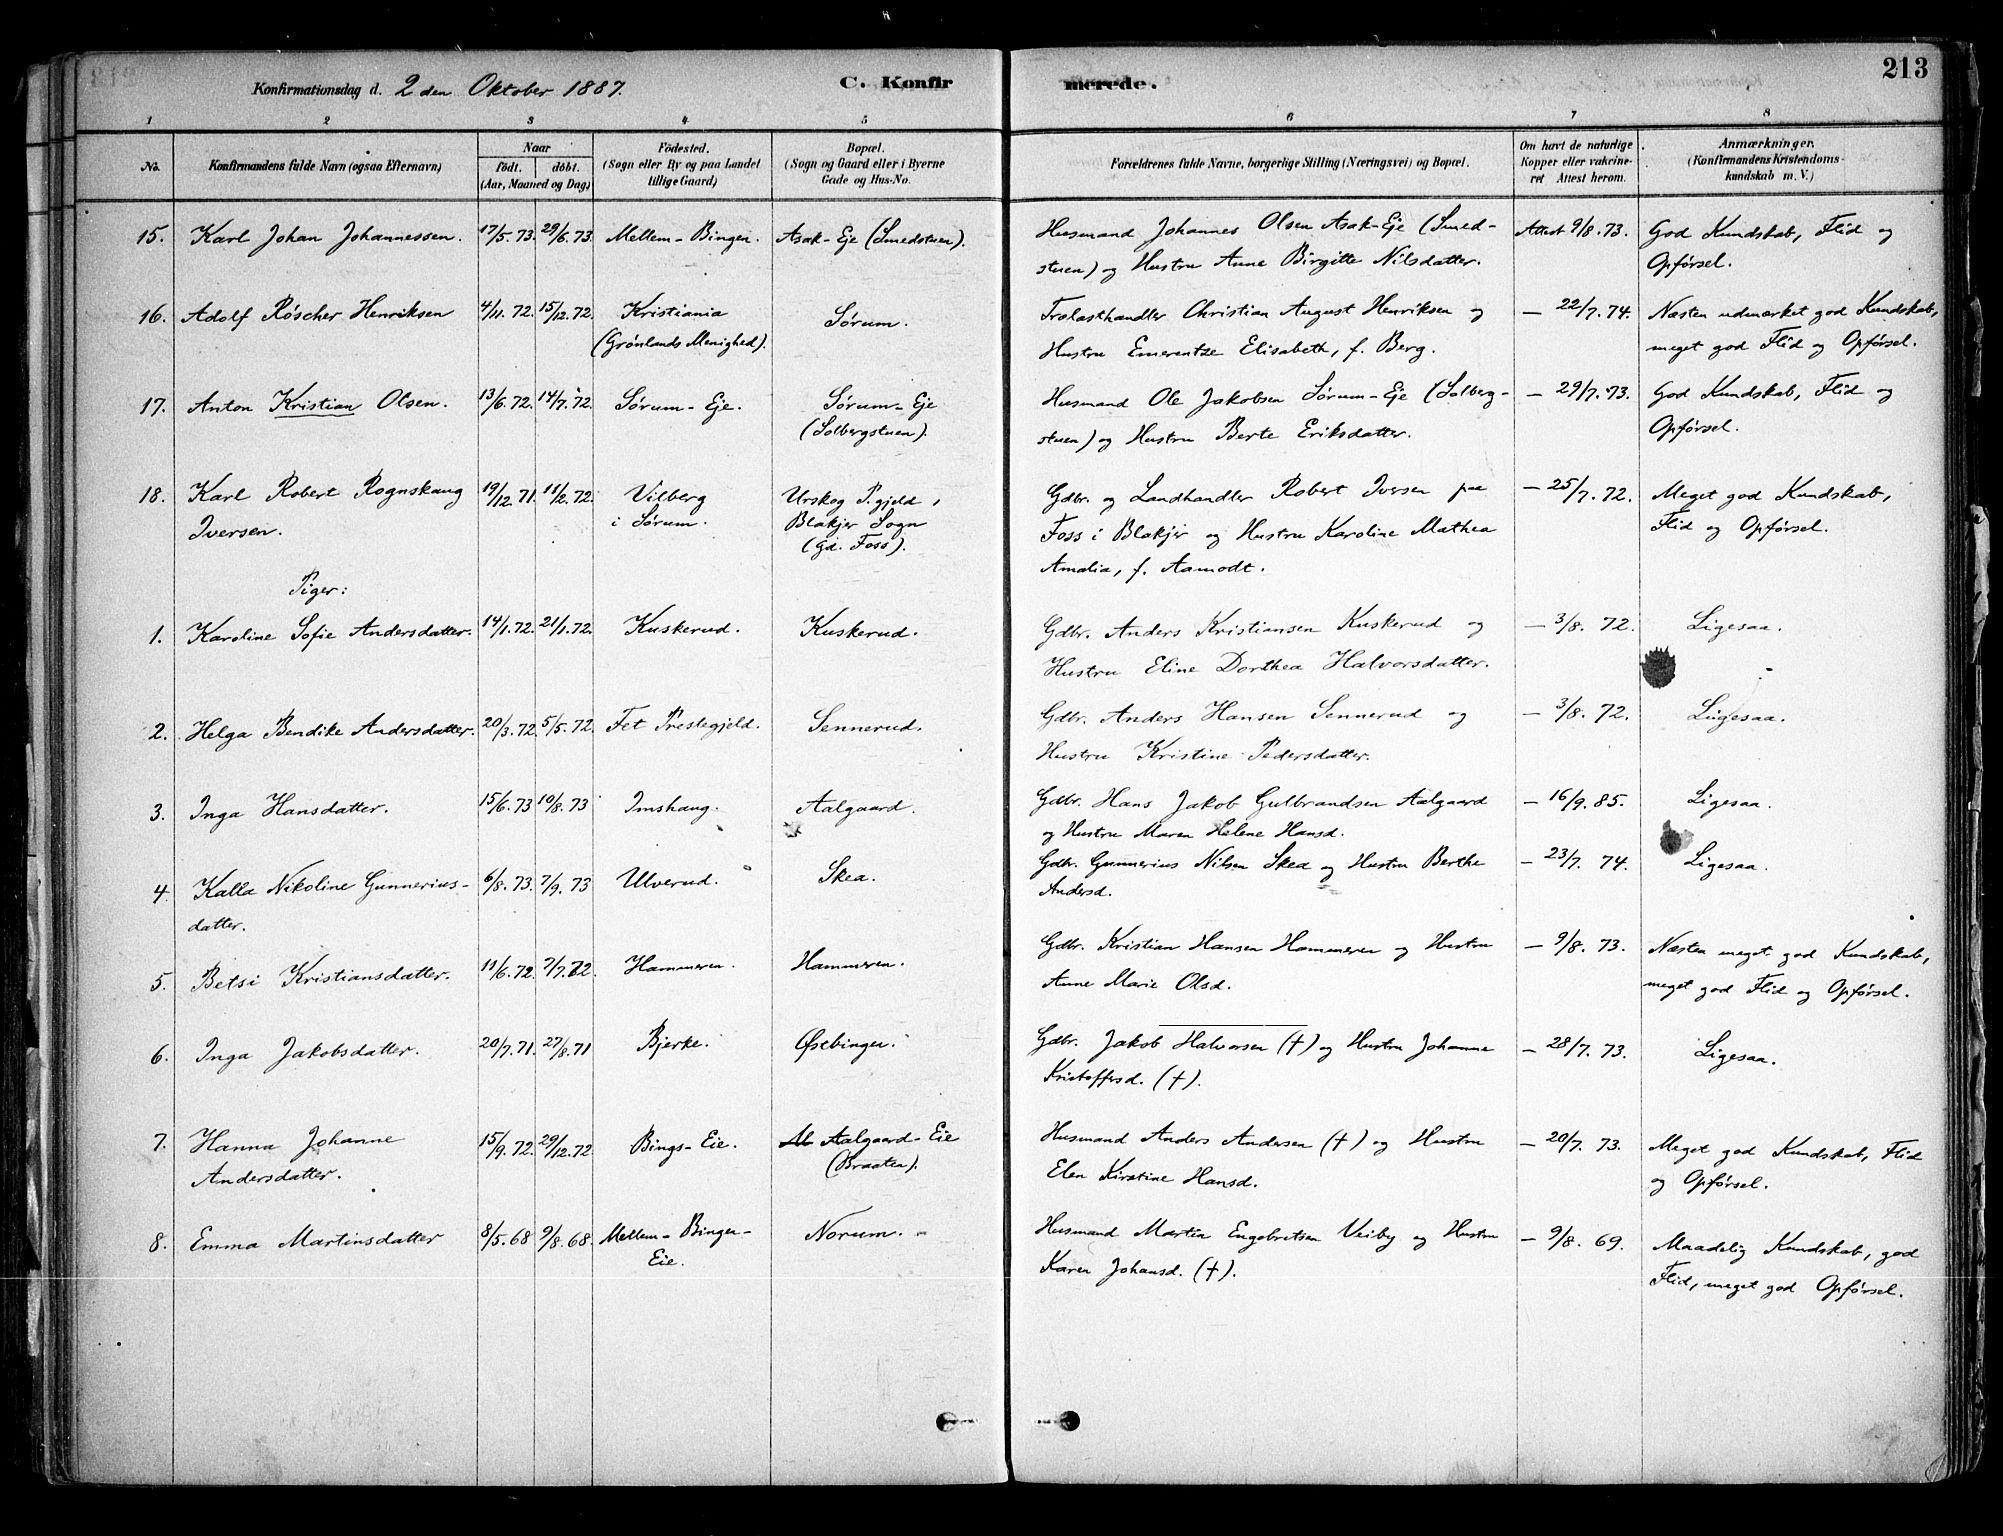 213
Konfirmationsdag d. 2den Oktober 1887.
C. Konfirmerede.
1 2 3 4 5 6 7 8
No.
Konfirmandens fulde Navn (ogsaa Efternavn)
Naar
født. døbt.
(Aar, Maaned og Dag)
Fødested.
(Sogn eller By og paa Landet
tillige Gaard)
Bopæl.
(Sogn og Gaard eller i Byerne
Gade og Hus-No.
Forældrenes fulde Navne, borgerlige Stilling (Næringsvei) og Bopæl.
Om havt de naturlige
Kopper eller vakcine-
ret Attest herom.
Anmærkninger.
(Konfirmandens Kristendoms-
kundskab m. V.)
15. Karl Johan Johannessen. 17/5.73. 29/6.73. Mellem-Bingen. Asak-Eje (Smedstuen). Husmand Johannes Olsen Asak-Eje (Smed- Attest 9/8.73. God Kundskab, Flid og
stuen) og Hustru Anne Birgitte Nilsdatter. Opførsel.
16. Adolf Röscher Henriksen 4/11.72. 15/12.72. Kristiania Sørum. Trælasthandler Christian August Henriksen og — 22/7.74. Næsten udmærket god Kundskab,
(Grønlands Menighed). Hustru Emerentze Elisabeth, f. Berg. meget god Flid og Opførsel.
17. Anton Kristian Olsen. 13/6.72. 14/7.72. Sørum-Eje. Sørum-Eje Husmand Ole Jakobsen Sørum-Eje (Solberg- — 29/7.73. God Kundskab, Flid og
(Solbergstuen). stuen) og Hustru Berte Eriksdatter. Opførsel.
18. Karl Robert Rognskaug 19/12.71. 11/2.72. Vilberg Urskog P.gjeld, Gdbr. og Landhandler Robert Iversen paa — 25/7.72. Meget god Kundskab,
Iversen. i Sørum. Blakjer Sogn Foss i Blakjer og Hustru Karoline Mathea Flid og Opførsel.
(Gd. Foss). Amalia, f. Aamodt.
Piger:
1. Karoline Sofie Andersdatter. 14/1.72. 21/1.72. Kuskerud. Kuskerud. Gdbr. Anders Kristiansen Kuskerud og — 3/8.72. Ligesaa.
Hustru Eline Dorthea Halvorsdatter.
2. Helga Bendike Andersdatter. 20/3.72. 5/5.72. Fet Prestegjeld. Sennerud. Gdbr. Anders Hansen Sennerud og — 3/8.72. Ligesaa.
Hustru Kristine Pedersdatter.
3. Inga Hansdatter. 15/6.73 10/8.73 Imshaug. Aalgaard. Gdbr. Hans Jakob Gulbrandsen Aalgaard — 16/9.85. Ligesaa.
og Hustru Maren Helene Hansd.
4. Kalla Nikoline Gunnerius- 6/8.73. 7/9.73 Ulverud. Skea. Gdbr. Gunnerius Nilsen Skea og Hustru Berthe — 23/7.74. Ligesaa.
datter. Andersd.
5. Betsi Kristiansdatter. 11/6.72. 7/7.72. Hammeren. Hammeren. Gdbr. Kristian Hansen Hammeren og Hustru — 9/8.73. Næsten meget god Kundskab,
Anne Marie Olsd. meget god Flid og Opførsel.
6. Inga Jakobsdatter. 20/7.71. 27/8.71 Bjerke. Østbingen. Gdbr. Jakob Halvorsen (†) og Hustru Johanne — 28/7.73. Ligesaa.
Kristoffersd. (†).
7. Hanna Johanne 15/9.72. 29/12.72 Bings-Eie. Aalgaard-Eie Husmand Anders Andersen (†) og Hustru — 20/7.73. Meget god Kundskab, Flid
Andersdatter. (Braaten). Elen Kirstine Hansd. og Opførsel.
8. Emma Martinsdatter 8/5.68 9/8.68. Mellem-Bingen- Norum. Husmand Martin Engebretsen Veiby og Hustru — 9/8.69. Maadelig Kundskab, god
Eie. Karen Johansd. (†). Flid, meget god Opførsel.